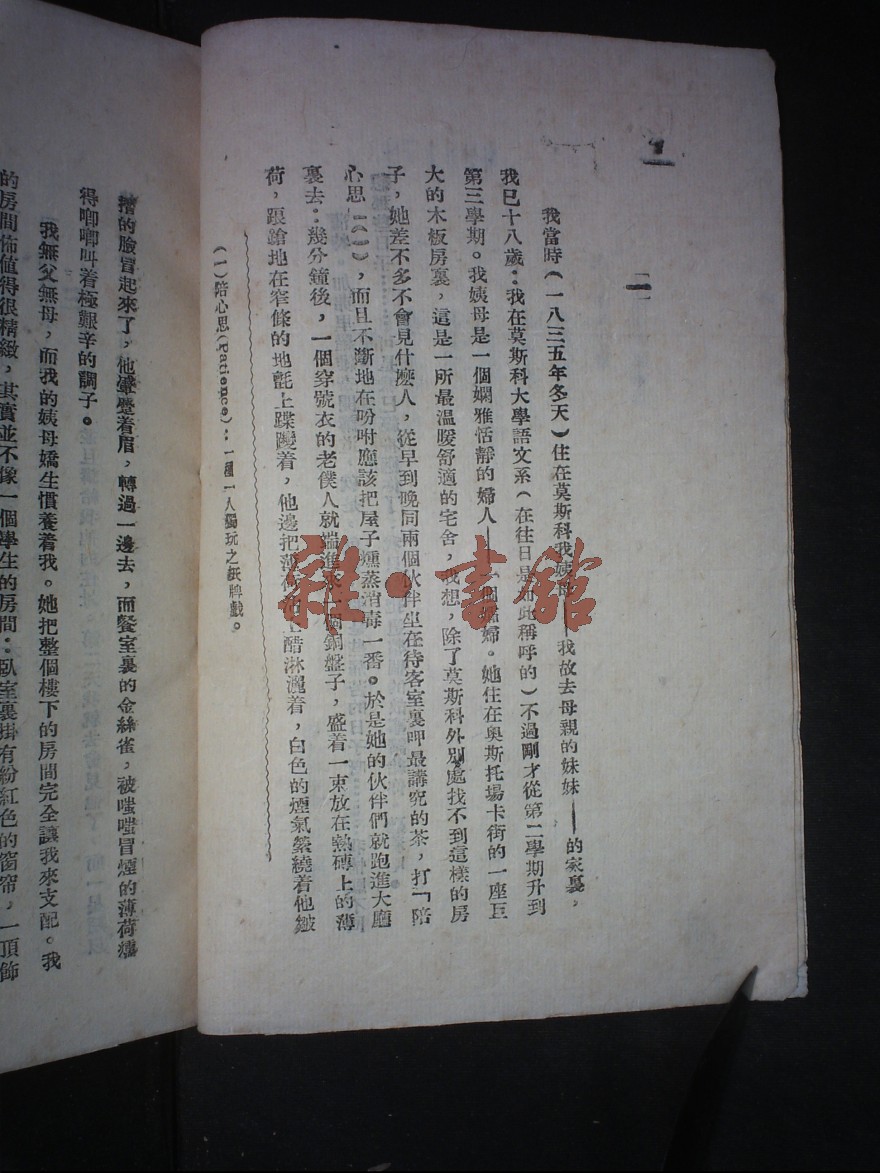 二
我當時(一八三五年冬天)住在莫斯科我姨母——我故去母親的妹妹——的家裏,
我已十八歲:我在莫斯科大學語文系(在往日是如此稱呼的)不過剛才從第二學期升到
第三學期。我姨母是一個嫻雅恬靜的婦人——一個孀婦。她住在奧斯托場卡街的一座巨
大的木板房裏,這是一所最溫暖舒適的宅舍,我想,除了莫斯科外別處找不到這樣的房
子,她差不多不會見什麼人,從早到晚同兩個伙伴坐在待客室裏呷最講究的茶,打「陪
心思」(一),而且不斷地在吩咐應該把屋子燻蒸消毒一番。於是她的伙伴們就跑進大廳
裏去:幾分鐘後,一個穿號衣的老僕人就端進來一個銅盤子,盛着一束放在熱磚上的薄
荷,踉蹌地在窄條的地氈上蹀躞着,他邊把薄荷油上醋淋灑着,白色的煙氣縈繞着他皺
(一)陪心思(Patience):一種一人獨玩之紙牌戲。
摺的臉冒起來了,他顰蹙着眉,轉過一邊去,而餐室裏的金絲雀,被嗤嗤冒煙的薄荷爐
得唧唧叫着極艱辛的調子。
我無父無母,而我的姨母嬌生慣養着我。她把整個樓下的房間完全讓我來支配。我
的房間佈值得很精緻,其實並不像一個學生的房間:臥室裏掛有紛紅色的窗帘,一頂飾
雜·書館